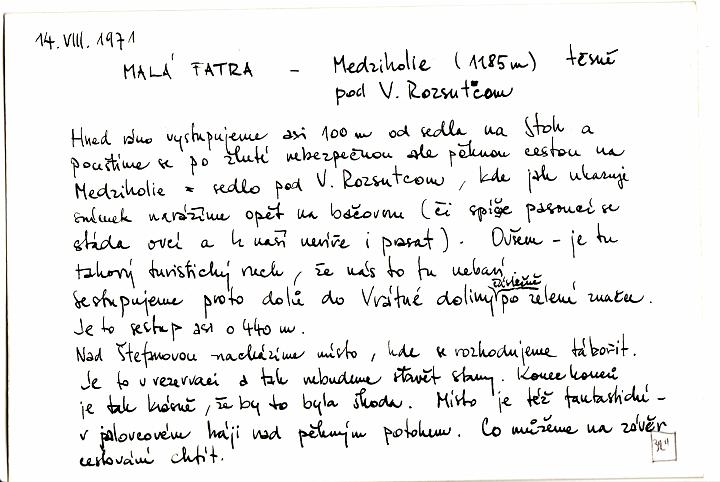 14. VIII. 1971
MALÁ FATRA – Medziholie (1185 m) těsně
pod V. Rozsutcom
Hned ráno vystupujeme asi 100 m od sedla na Stoh a
pouštíme se po žluté nebezpečnou ale pěknou cestou na
Medziholie = sedlo pod V. Rozsutcom, kde jak ukazuje
snímek narážíme opět na bačovnu (či spíše pasoucí se
stáda ovcí a k naší nevíře i prasat). Ovšem – je tu
takový turistický ruch, že nás to tu nebaví
sestupujeme proto dolů do Vrátné doliny závěrečně po zelené značce.
Je to sestup asi o 440 m.
Nad Štefanovou nacházíme místo, kde se rozhodujeme tábořit.
Je to v rezervaci a tak nebudeme stavět stany. Konec konců
je tak krásně, že by to byla škoda. Místo je též fantastické –
v jalovcovém háji nad pěkným potokem. Co můžeme na závěr
cestování chtít.